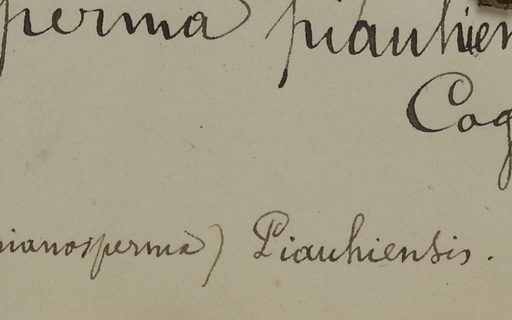 perma piauhien
Cog
nianosperma) Piauhiensis.